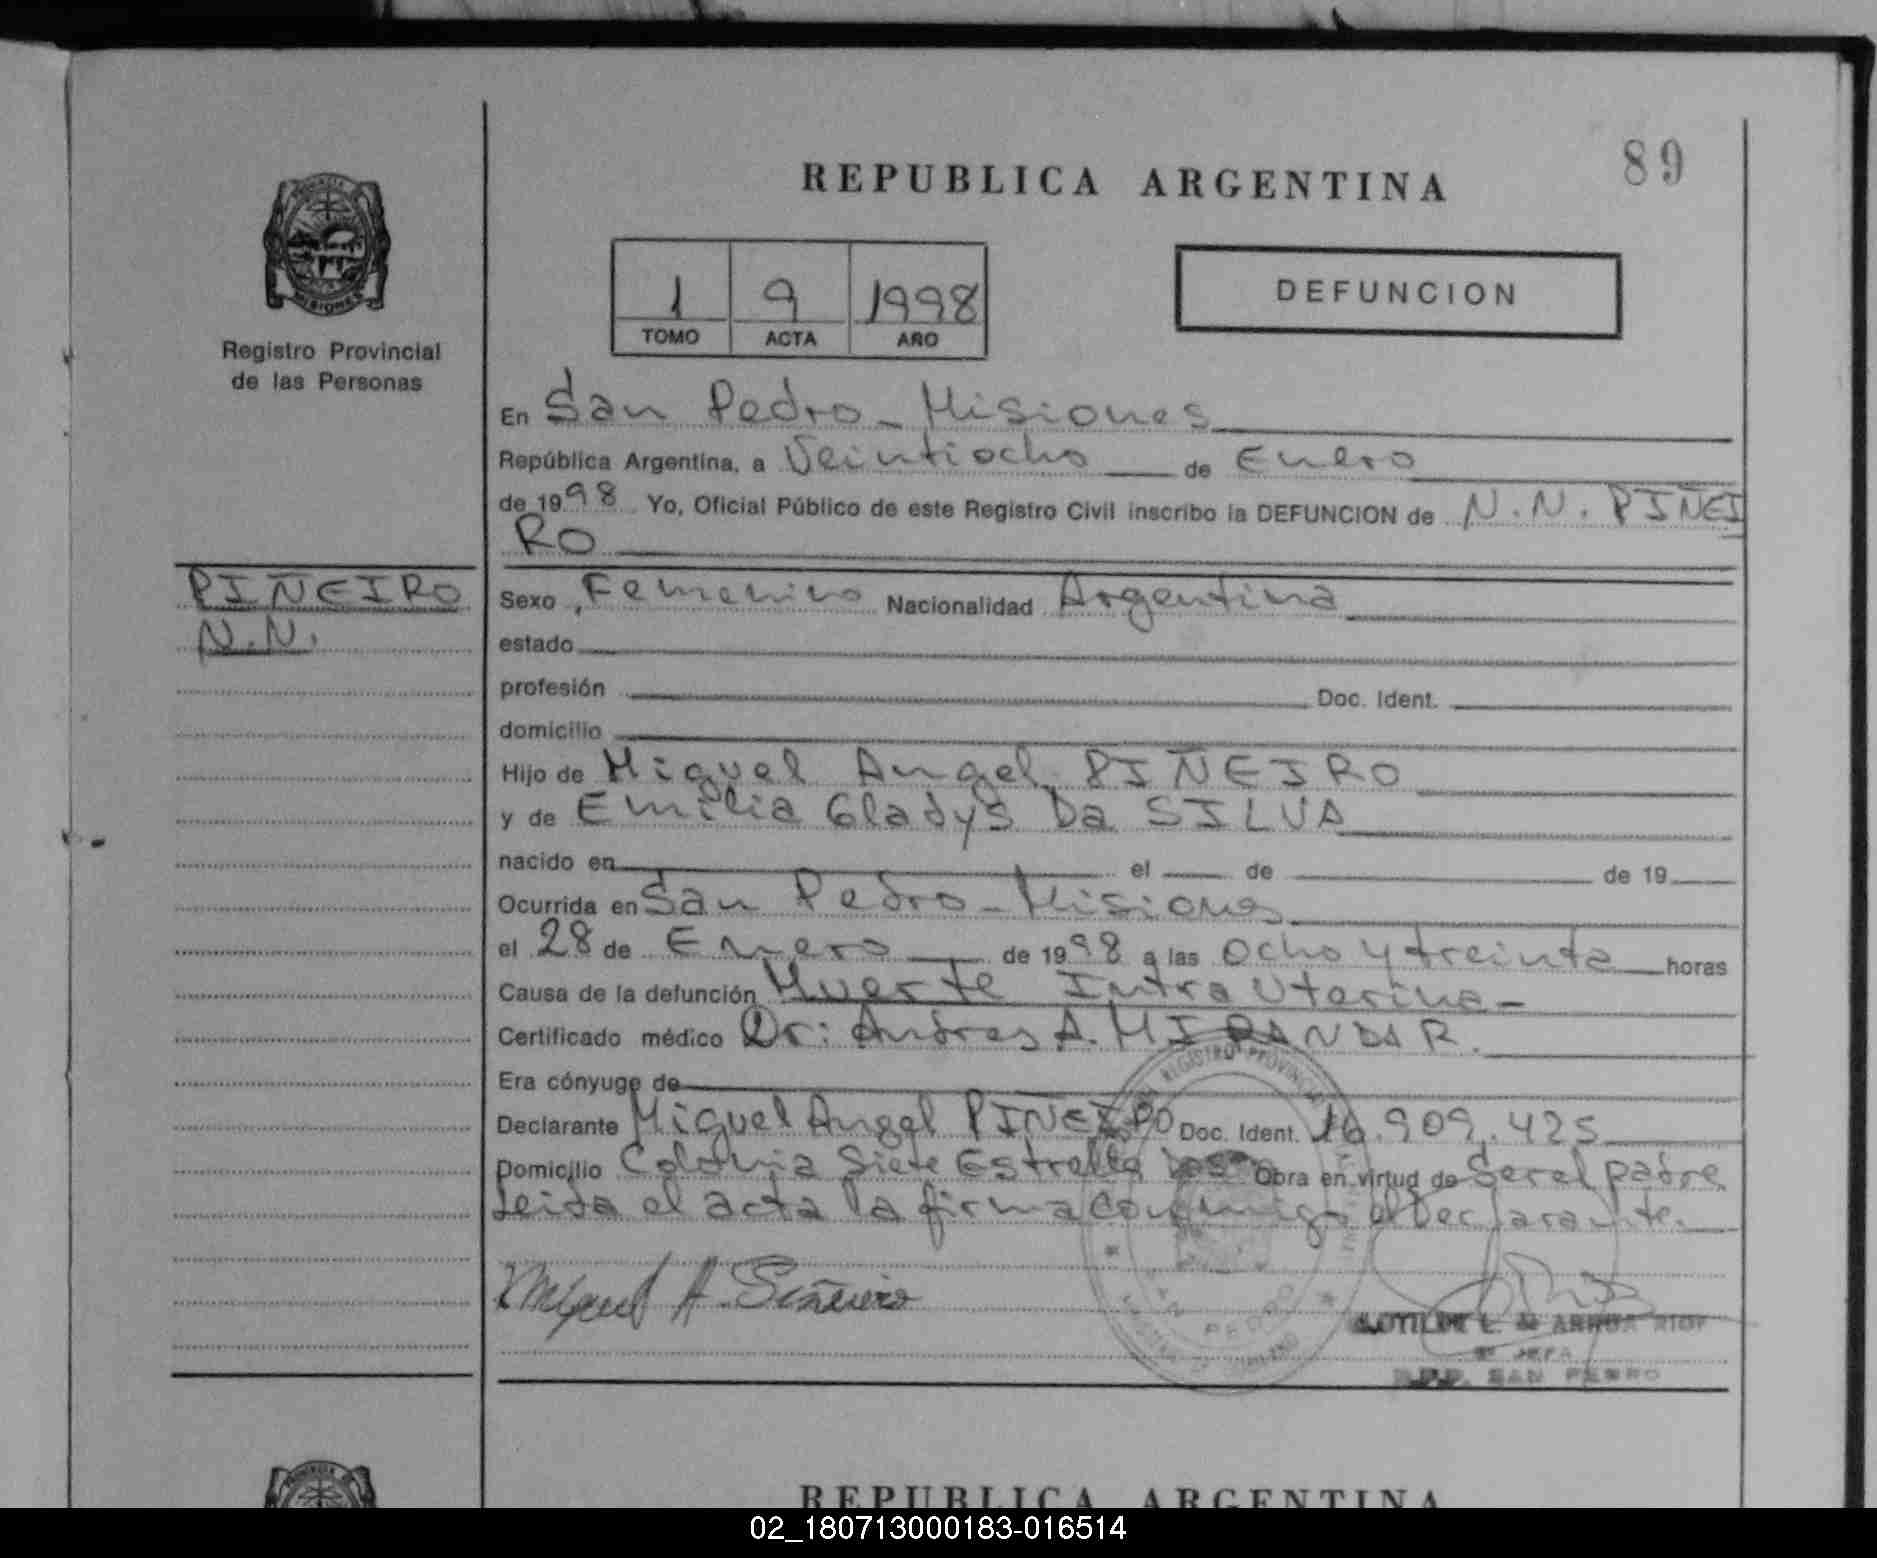 89
REPUBLICA ARGENTINA
PROVINCIA DE
MISIONES
1 9 1998
TOMO ACTA AÑO
DEFUNCION
Registro Provincial
de las Personas
En San Pedro - Misiones
República Argentina, a Veintiocho de Enero
de 1998 Yo, Oficial Público de este Registro Civil inscribo la DEFUNCION de N.N. PIÑEI
RO
PIÑEIRO
N.N.
Sexo Femenino Nacionalidad Argentina
estado
profesión Doc. Ident.
domicilio
Hijo de Miguel Angel PIÑEIRO
y de Emilia Gladys Da SILVA
nacido en el de de 19
Ocurrida en San Pedro - Misiones
el 28 de Enero de 1998 a las Ocho y treinta horas
Causa de la defunción Muerte Intra Uterina -
Certificado médico Dr: Andres A. MIRANDA R.
Era cónyuge de
Declarante Miguel Angel PIÑEIRO Doc. Ident. 16.909.425
Domicilio Colonia Siete Estrella Obra en virtud de Ser el padre
Leida el acta la firma conmigo el Declarante.
REGISTRO PROVINCIAL
SAN PEDRO
Miguel A. Piñeiro
CLOTILDE L. de ARRUA
JEFA
R.P.P. SAN PEDRO
REPUBLICA ARGENTINA
02_180713000183-016514